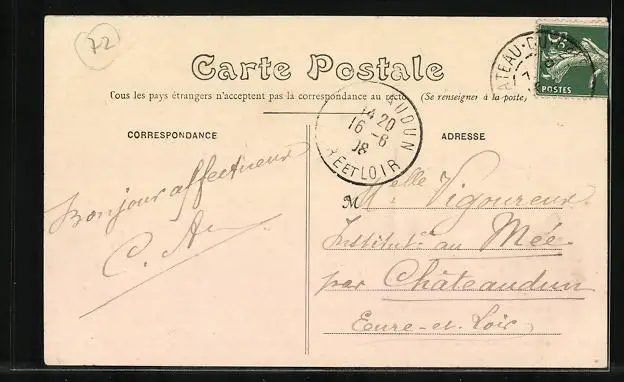 72
Carte Postale
Tous les pays étrangers n'acceptent pas la correspondance au recto (Se renseigner à la poste)
CORRESPONDANCE
ADRESSE
Bonjour affectueux
C. A
ATEAU-D
5c
POSTES
AUDUN
14 20
16 -8
08
RE ET LOIR
M M.elle Vigoureux
Institut. au Mée.
par Châteaudun
Eure-et-Loir